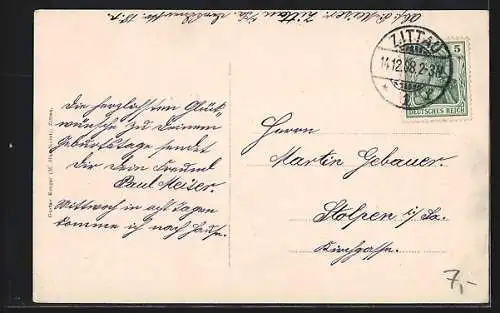 ZITTAU
14.12.08.2-3N.
5
DEUTSCHES REICH
Die herzlichsten Glück-
wünsche zu Deinem
Geburtstage sendet
Dir Dein Freund
Paul Meiser.
Mittwoch in acht Tagen
komme ich nach Hause.
Herrn
Martin Gebauer.
Stolpen i/Sa.
Kirchgasse.
7,-